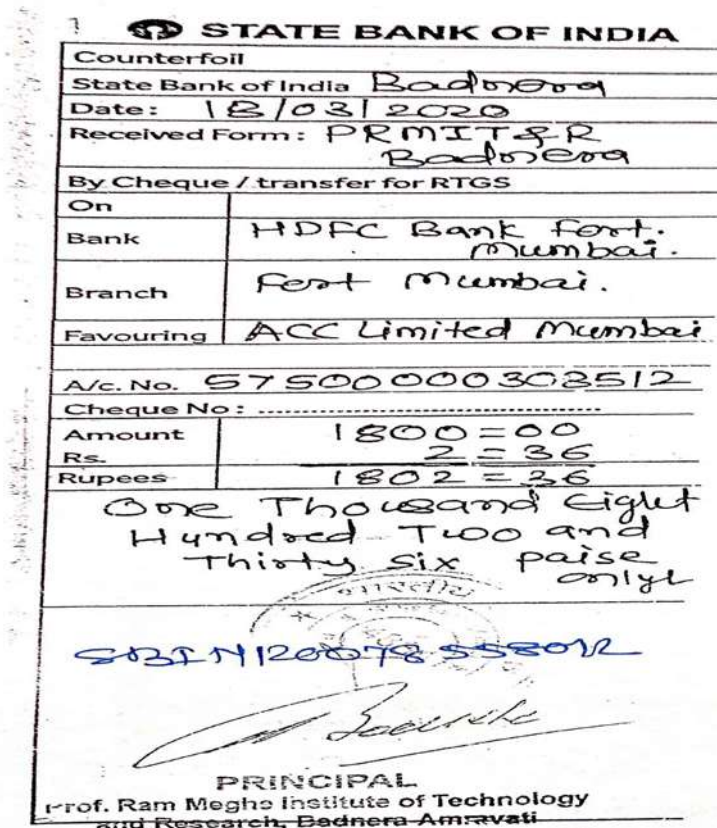 STATE BANK OF INDIA
Counterfoil
State Bank of India Badnera
Date: 18/03/2020
Received Form: PRMIT&R
Badnera
By Cheque / transfer for RTGS
On
Bank HDFC Bank Fort.
Mumbai.
Branch Fort Mumbai.
Favouring ACC Limited Mumbai
A/c. No. 57500000308512
Cheque No: ....................................
Amount 1800=00
Rs. 2=36
Rupees 1802=36
One Thousand Eight
Hundred Two and
Thirty Six paise
only
भारतीय
PRINCIPAL
Prof. Ram Meghe Institute of Technology
and Research, Badnera-Amravati